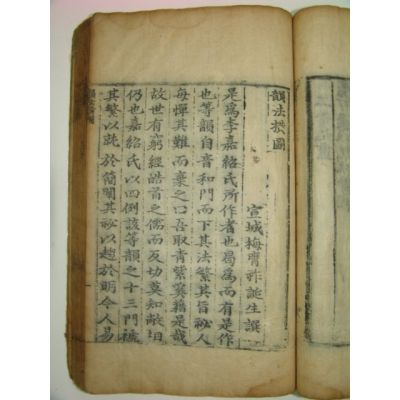 韻法橫圖
宣城梅膺祚誕生譔
是爲李嘉紹氏所作者也曷爲而有是作
也等韻自音和門而下其法繁其旨祕人
每憚其難而棄之曰吾取青紫奚藉是哉
故世有窮經皓首之儒而反切莫知敝也
仍也嘉紹氏以四例該等韻之十三門褫
其繁以就於簡闡其祕以趨於明令人易